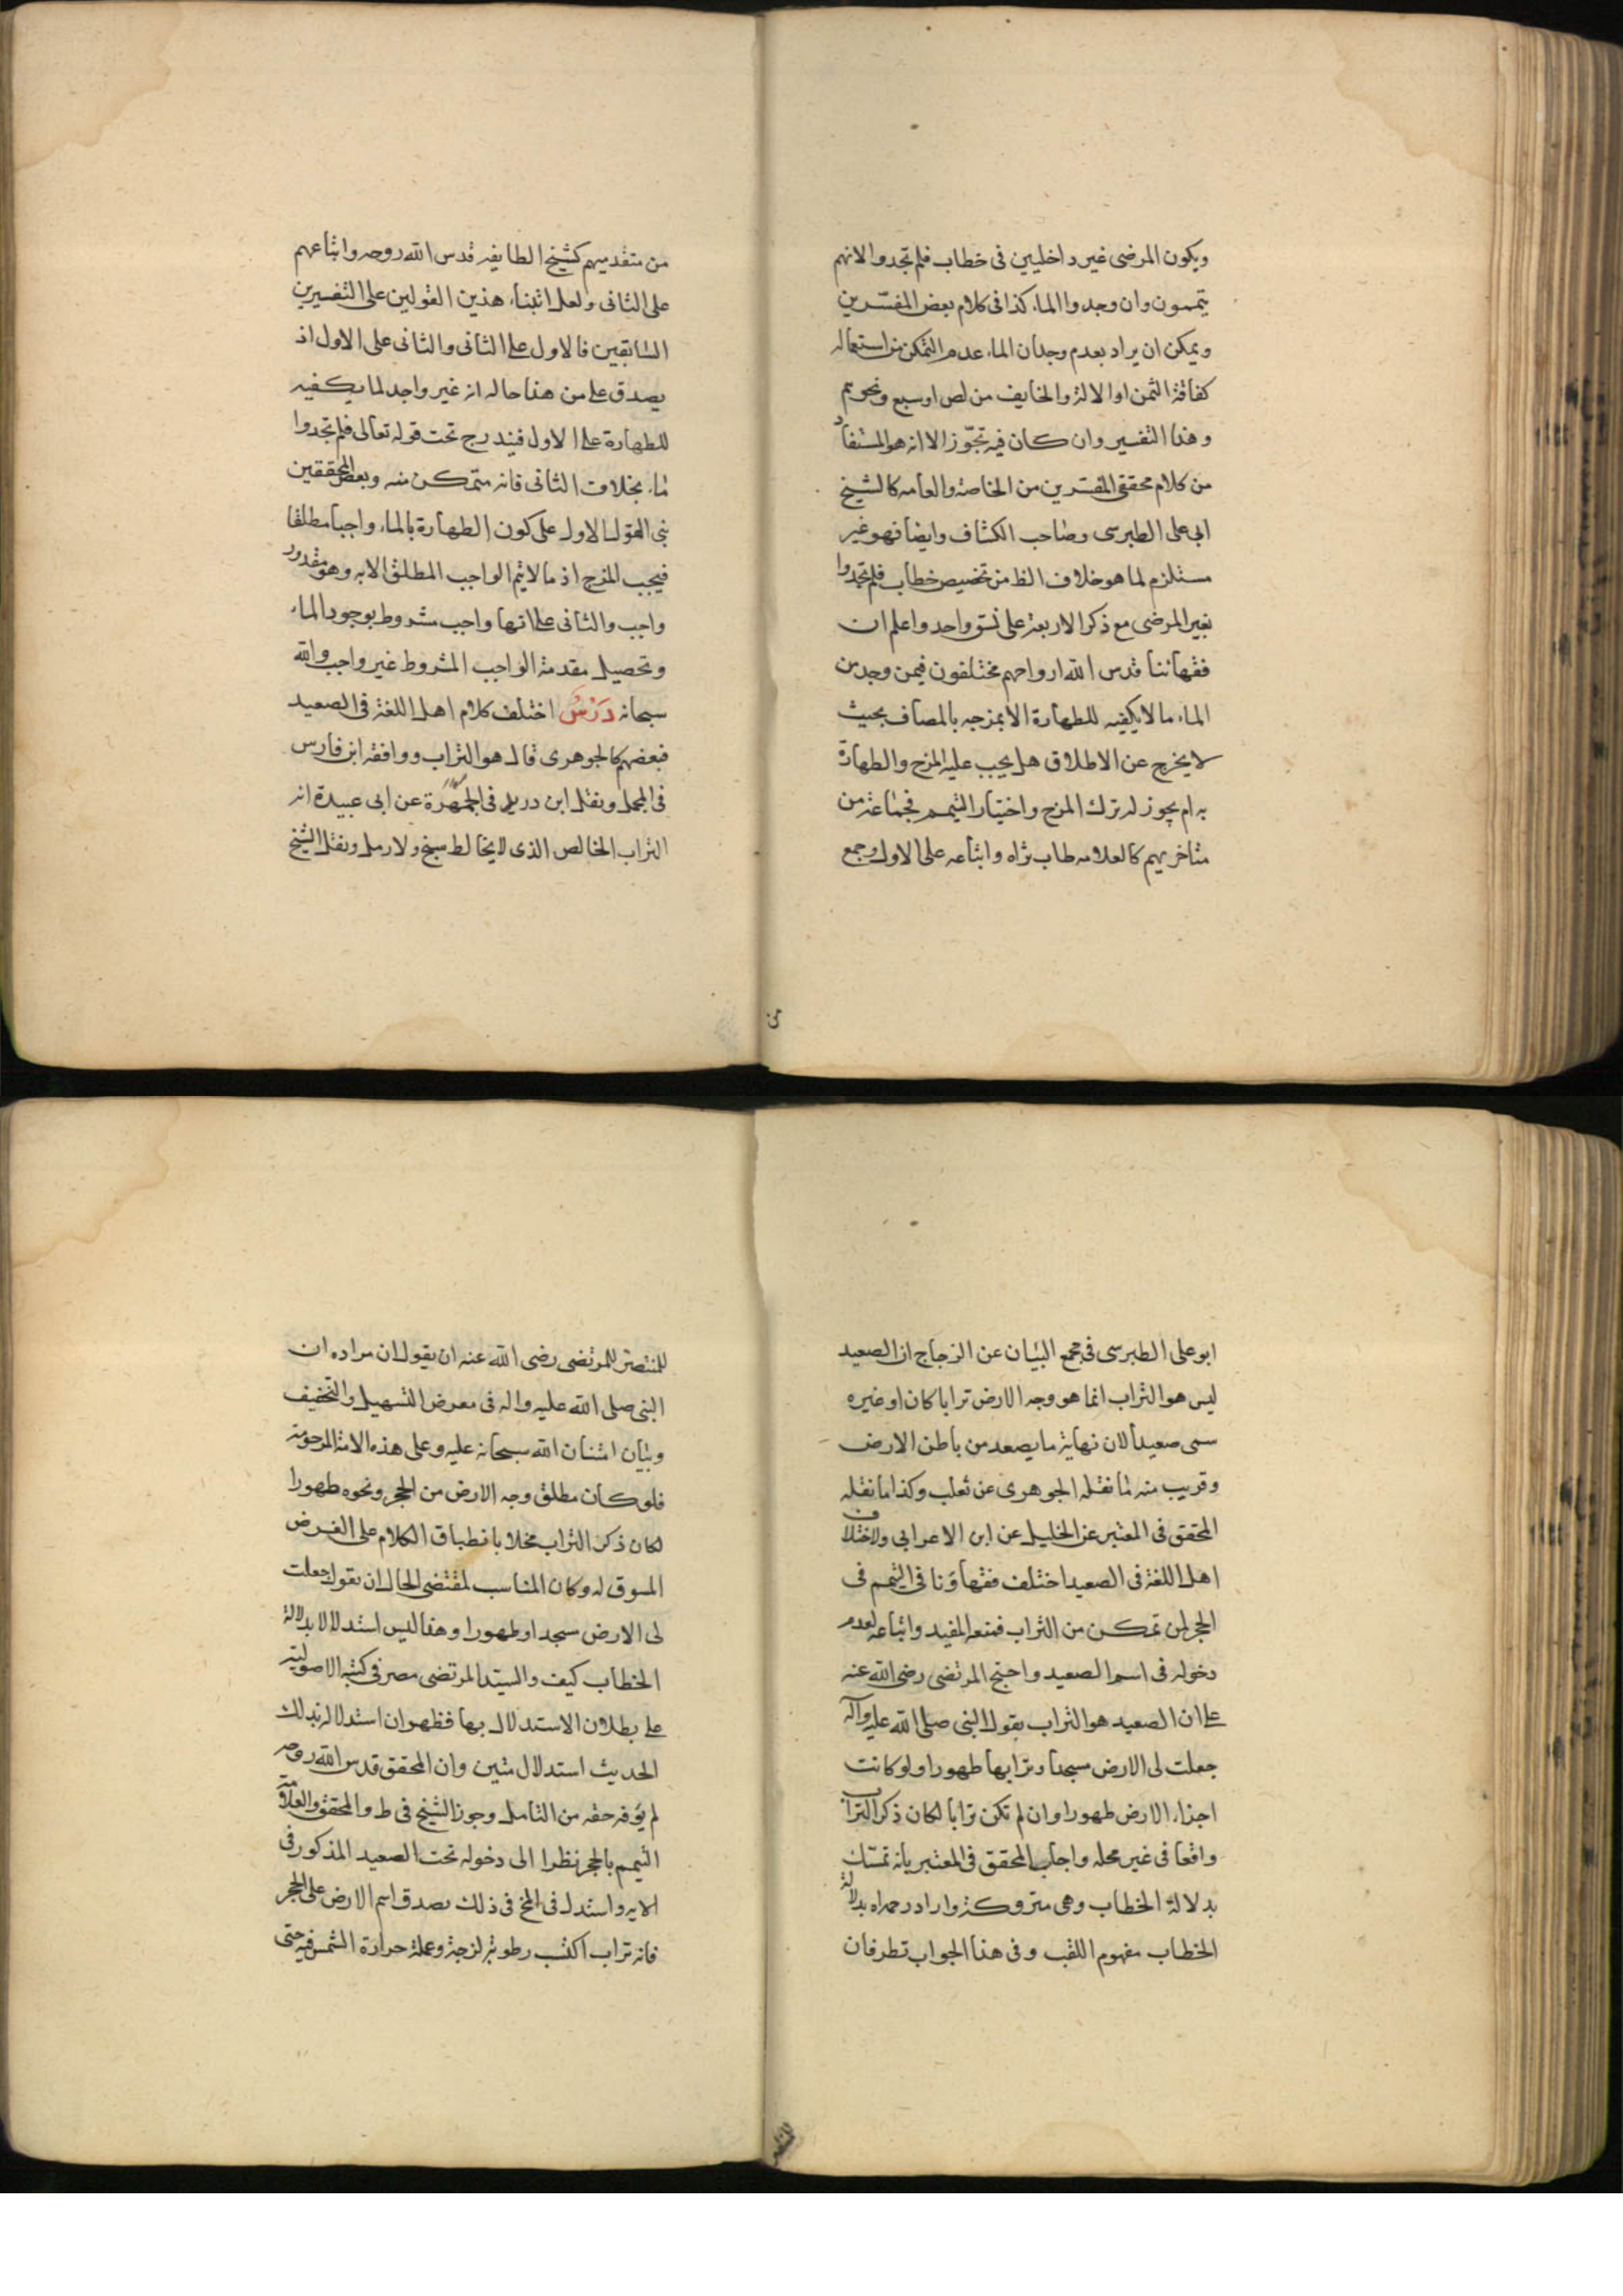 ويكون المرضى غير داخليين فى خطاب فلم تجدوا لانهم
يتممون وان وجدوا الماء كذا فى كلام بعض المفسّرين
ويمكن ان يراد بعدم وجدان الماء عدم التمكن من استعماله
كفاقة الثمن او الالة والخايف من لص او سبع ونحوهم
وهذا التفسير وان كان فيه تجوّز الا انه هو المستفاد
من كلام محققى المفسّرين من الخاصة والعامه كالشيخ
ابى على الطبرسى وصاحب الكشاف وايضا فهو غير
مستلزم لما هو خلاف الظ من تخصيص خطاب فلم تجدوا
بغير المرضى مع ذكر الاربعة على نسق واحد واعلم ان
فقهائنا قدس الله ارواحهم مختلفون فيمن وجد من
الماء ما لا يكفيه للطهارة الا بمزجه بالمضاف بحيث
لا يخرج عن الاطلاق هل يجب عليه المزج والطهارة
به ام يجوز له ترك المزج واختيار التيمم فجماعة من
متاخريهم كالعلامه طاب ثراه واتباعه على الاول وجمع
من متقدميهم كشيخ الطايفه قدس الله روحه واتباعهم
على الثانى ولعل ابتناء هذين القولين على التفسيرين
السابقين فالاول على الثانى والثانى على الاول اذ
يصدق على من هذا حاله انه غير واجد لما يكفيه
للطهارة على الاول فيندرج تحت قوله تعالى فلم تجدوا
ماء بخلاف الثانى فانه متمكن منه وبعض المحققين
بنى القول الاول على كون الطهارة بالماء واجبا مطلقا
فيجب المزج اذ ما لا يتم الواجب المطلق الا به وهو مقدور
واجب والثانى على انها واجب مشروط بوجود الماء
وتحصيل مقدمة الواجب المشروط غير واجب والله
سبحانه دَرْسٌ اختلف كلام اهل اللغة فى الصعيد
فبعضهم كالجوهرى قال هو التراب ووافقه ابن فارس
فى المجمل ونقل ابن دريد فى الجمهرة عن ابى عبيدة انه
التراب الخالص الذى لا يخالط سبخ ولا رمل ونقل الشيخ
ابو على الطبرسى فى مجمع البيان عن الزجاج ان الصعيد
ليس هو التراب انما هو وجه الارض ترابا كان او غيره
سمى صعيدا لان نهاية ما يصعد من باطن الارض
وقريب منه ما نقله الجوهرى عن ثعلب وكذا ما نقله
المحقق فى المعتبر عن الخليل عن ابن الاعرابى ولاختلاف
اهل اللغة فى الصعيد اختلف فقهاؤنا فى التيمم فى
الحجر لمن تمكن من التراب فمنعه المفيد واتباعه لعدم
دخوله فى اسم الصعيد واحتج المرتضى رضى الله عنه
على ان الصعيد هو التراب بقول النبى صلى الله عليه وآله
جعلت لى الارض مسجدا وترابها طهورا ولو كانت
اجزاء الارض طهورا وان لم تكن ترابا لكان ذكر التراب
واقعا فى غير محله واجاب المحقق فى المعتبر بانه تمسّك
بدلالة الخطاب وهى متروكة واراد رحمه الله بدلالة
الخطاب مفهوم اللقب وفى هذا الجواب نظر فان
للمنتصر للمرتضى رضى الله عنه ان يقول ان مراده ان
النبى صلى الله عليه واله فى معرض التسهيل والتخفيف
وبيان امتنان الله سبحانه عليه وعلى هذه الامة المرحومة
فلو كان مطلق وجه الارض من الحجر ونحوه طهورا
لكان ذكر التراب مخلا بانطباق الكلام على الغرض
المسوق له وكان المناسب لمقتضى الحال ان يقول جعلت
لى الارض مسجدا وطهورا وهذا ليس استدلالا بدلالة
الخطاب كيف والسيّد المرتضى مصرّ فى كتبه الاصولية
على بطلان الاستدلال بها فظهر ان استدلاله بذلك
الحديث استدلال متين وان المحقق قدس الله روحه
لم يوفه حقه من التامل وجوز الشيخ فى ط والمحقق والعلامة
التيمم بالحجر نظرا الى دخوله تحت الصعيد المذكور فى
الايه واستدل فى المخ فى ذلك بصدق اسم الارض على الحجر
فانه تراب اكتسب رطوبة لزجة وعملت حرارة الشمس فيه حتى